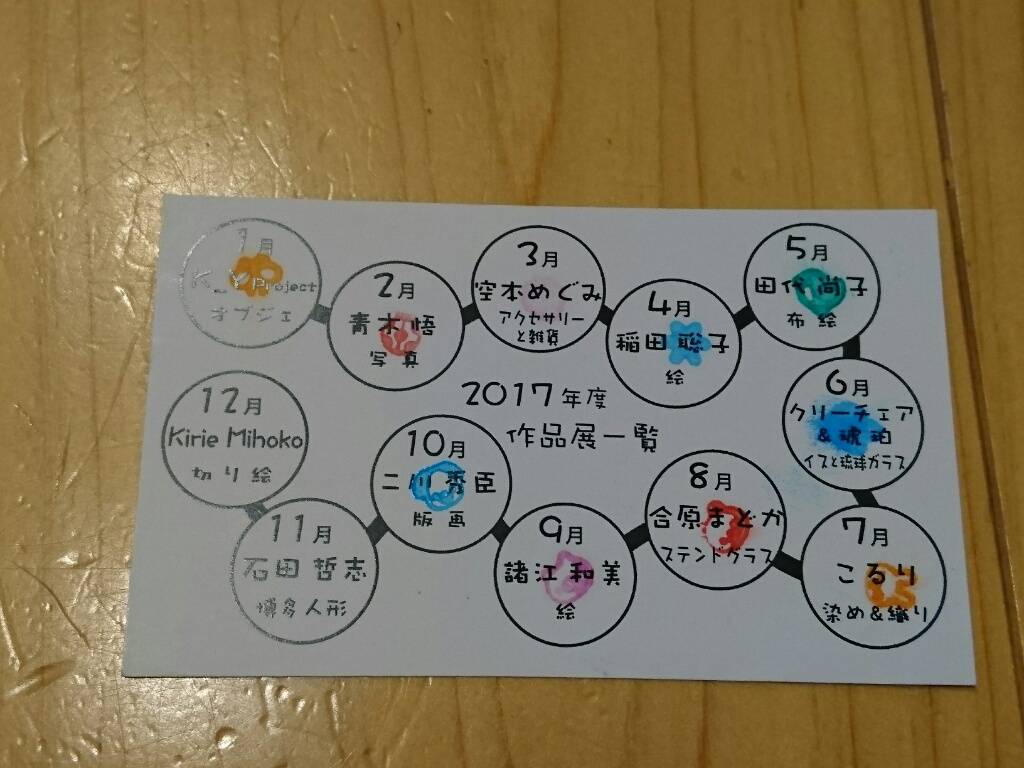 1月
K_Y Project
オブジェ
2月
青木悟
写真
3月
空本めぐみ
アクセサリー
と雑貨
4月
稲田聡子
絵
5月
田代尚子
布絵
6月
クリーチェア
&琥珀
イスと琉球ガラス
7月
こるり
染め&織り
8月
合原まどか
ステンドグラス
9月
諸江和美
絵
10月
二川秀臣
版画
11月
石田哲志
博多人形
12月
Kirie Mihoko
切り絵
2017年度
作品展一覧